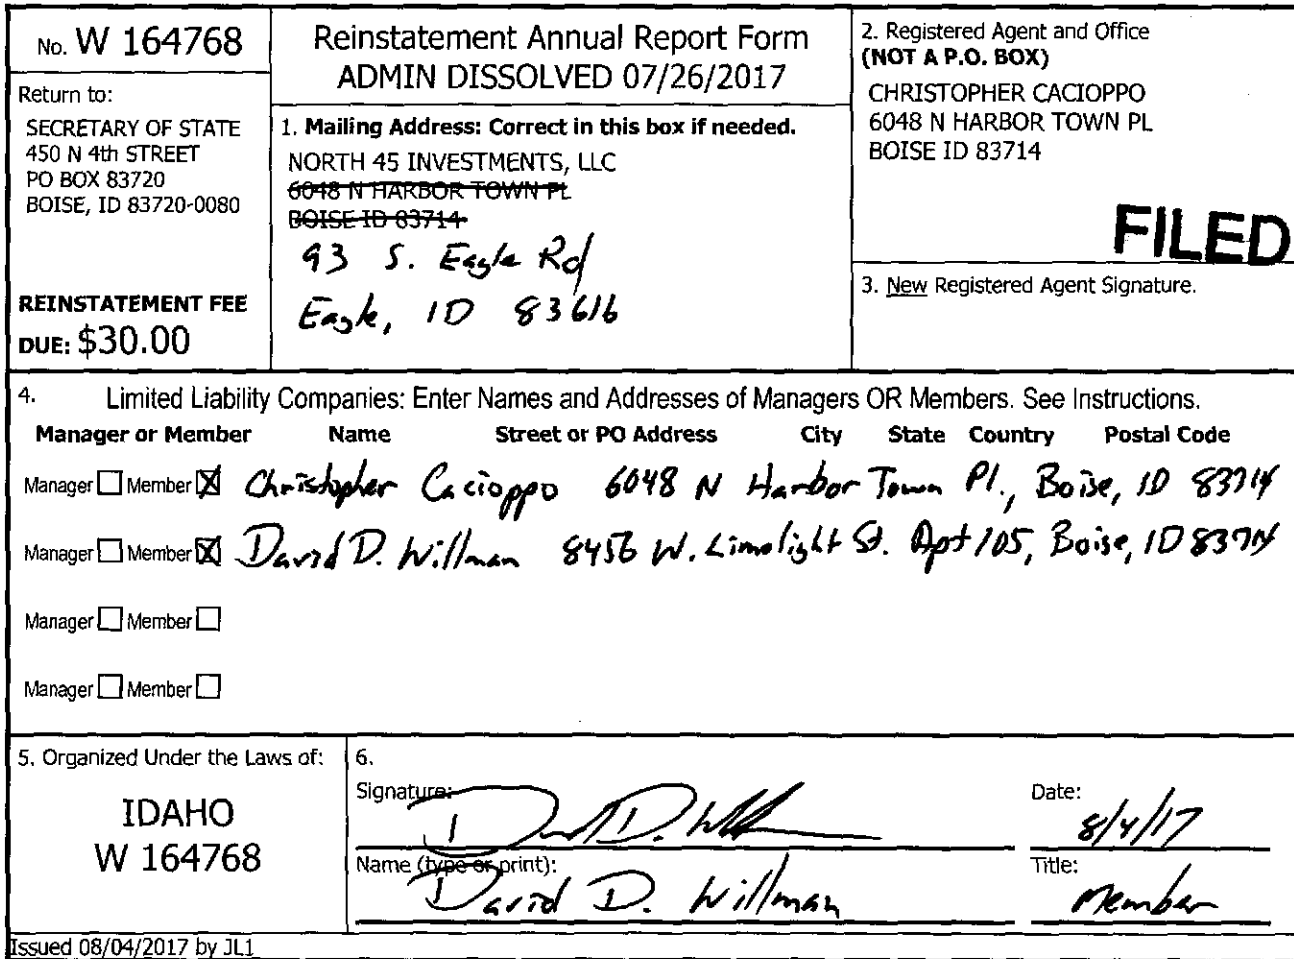 No. W 164768
Return to:
SECRETARY OF STATE
450 N 4th STREET
PO BOX 83720
BOISE, ID 83720-0080
REINSTATEMENT FEE
DUE: $30.00
Reinstatement Annual Report Form
ADMIN DISSOLVED 07/26/2017
1. Mailing Address: Correct in this box if needed.
NORTH 45 INVESTMENTS, LLC
6048 N HARBOR TOWN PL
BOISE ID 83714
93 S. Eagle Rd
Eagle, ID 83616
2. Registered Agent and Office
(NOT A P.O. BOX)
CHRISTOPHER CACIOPPO
6048 N HARBOR TOWN PL
BOISE ID 83714
FILED
3. New Registered Agent Signature.
4. Limited Liability Companies: Enter Names and Addresses of Managers OR Members. See Instructions.
Manager or Member Name Street or PO Address City State Country Postal Code
Manager Member Christopher Cacioppo 6048 N Harbor Town Pl., Boise, ID 83714
Manager Member David D. Willman 8456 W. Limelight St. Apt 105, Boise, ID 83714
Manager Member
Manager Member
5. Organized Under the Laws of:
IDAHO
W 164768
6.
Signature: David D. Willman
Date: 8/4/17
Name (type or print): David D. Willman
Title: Member
Issued 08/04/2017 by JL1